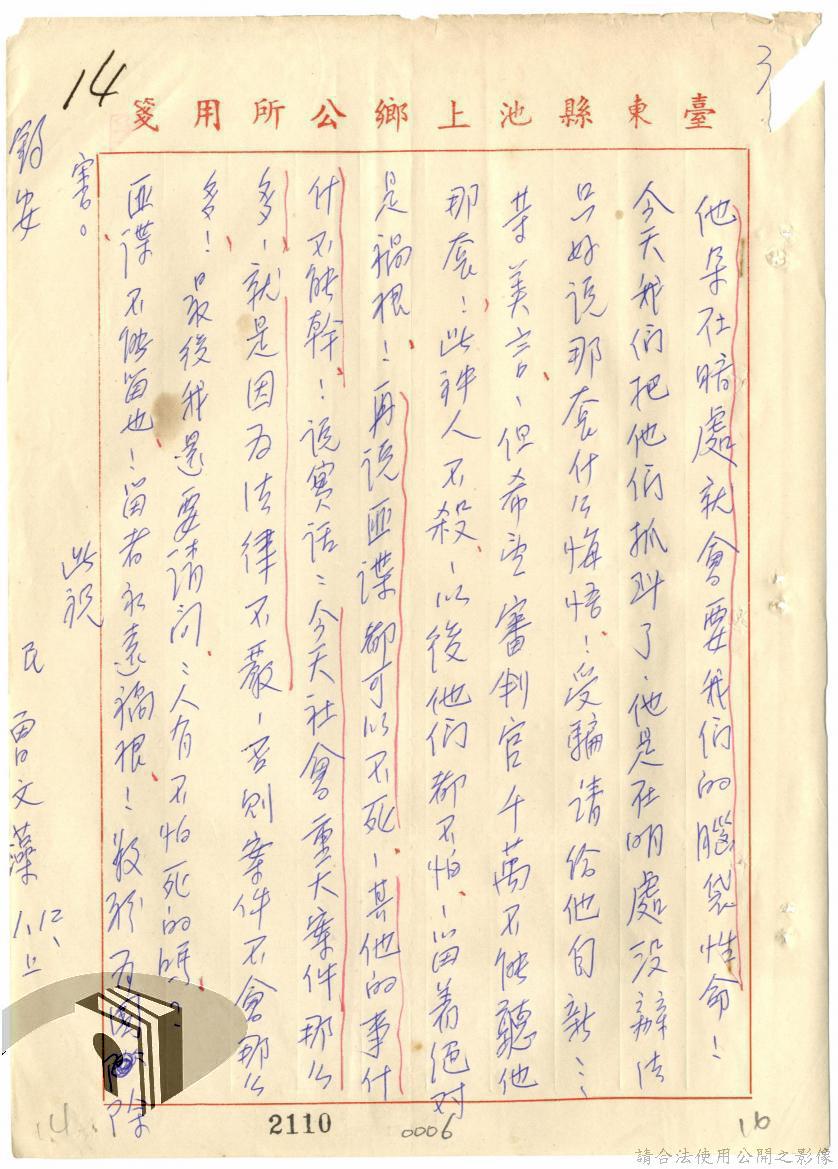 14
3
臺東縣池上鄉公所用箋
他朵在暗處就會要我们的腦袋性命！
今天我们把他们抓到了、他是在明處没辦法
只好说那套什么悔悟！受騙请给他自新……
等美言、但希望審判官千萬不能聽他
那套！此种人不殺、以後他们都不怕、留着绝对
是禍根！再说匪諜都可以不死、其他的事什
什不能幹！说實话：今天社會重大案件那么
多、就是因为法律不嚴、否则案件不會那么
多！最後我還要请问：人有不怕死的嗎？
匪諜不能留也！留者永遠禍根！殺於为國除
害。
此祝
鈞安
民 曾文藻
2110
0006
14
16
請合法使用公開之影像